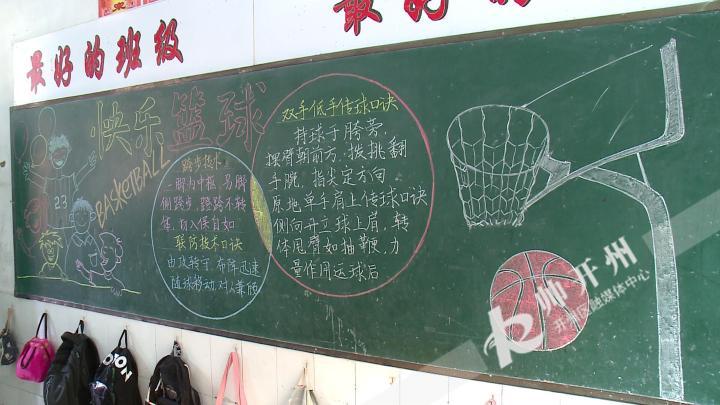 最好的班级
最好的
快乐篮球
BASKETBALL
23
跨步技术
联防技术口诀
由攻转守,布阵迅速
随球移动,对人兼顾
双手低手传球口诀
持球于胯旁,
摆臂朝前方,拨挑翻
手腕,指尖定方向
原地单手肩上传球口诀
侧向开立球上肩,转
体甩臂如抽鞭,力
量作用运球后
帅开州
开州区融媒体中心